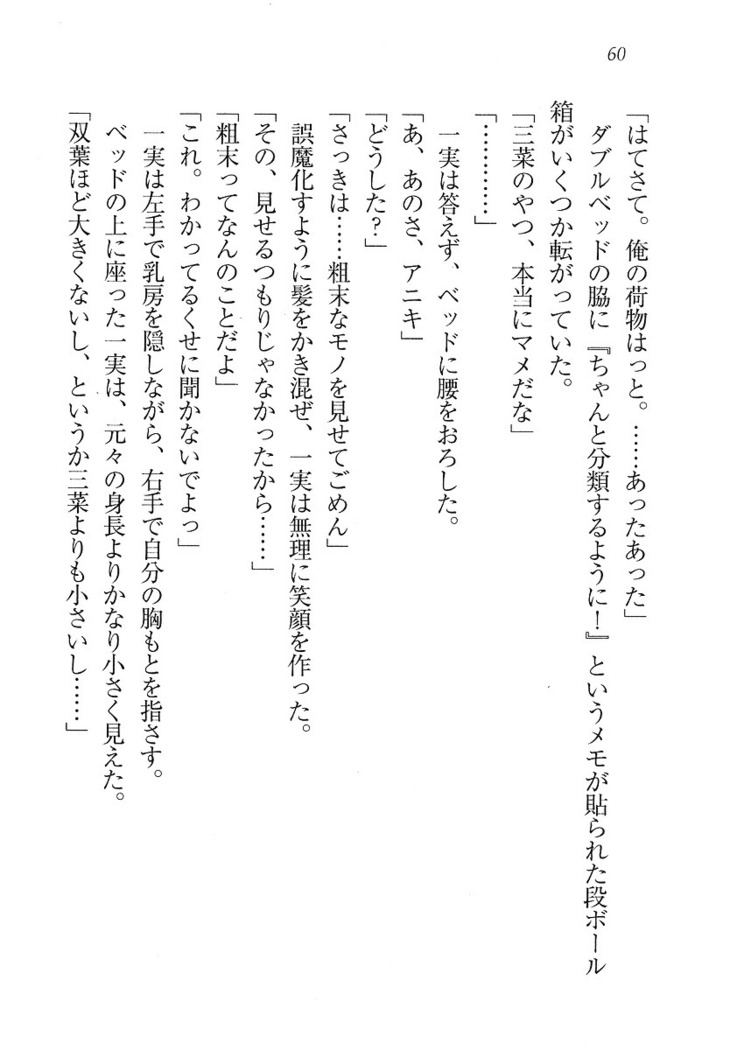 60
「はてさて。俺の荷物はっと。……あったあった」
ダブルベッドの脇に『ちゃんと分類するように！』というメモが貼られた段ボール
箱がいくつか転がっていた。
「三菜のやつ、本当にマメだな」
「…………」
一実は答えず、ベッドに腰をおろした。
「あ、あのさ、アニキ」
「どうした？」
「さっきは……粗末なモノを見せてごめん」
誤魔化すように髪をかき混ぜ、一実は無理に笑顔を作った。
「その、見せるつもりじゃなかったから……」
「粗末ってなんのことだよ」
「これ。わかってるくせに聞かないでよっ」
一実は左手で乳房を隠しながら、右手で自分の胸もとを指さす。
ベッドの上に座った一実は、元々の身長よりかなり小さく見えた。
「双葉ほど大きくないし、というか三菜よりも小さいし……」